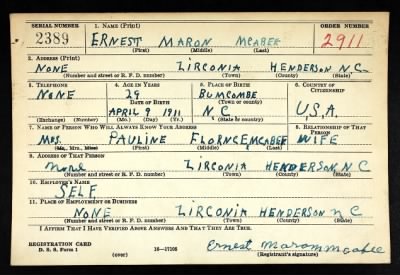 SERIAL NUMBER 1. NAME (Print) ORDER NUMBER
2389 ERNEST MARON MCABEE 2911
(First) (Middle) (Last)
2. ADDRESS (Print)
NONE ZIRCONIA HENDERSON N.C.
(Number and street or R. F. D. number) (Town) (County) (State)
3. TELEPHONE 4. AGE IN YEARS 5. PLACE OF BIRTH 6. COUNTRY OF CITIZENSHIP
NONE 29 BUMCOMBE
DATE OF BIRTH (Town) (County)
APRIL 9 1911 N.C. U.S.A.
(Exchange) (Number) (Mo.) (Day) (Yr.) (State or country)
7. NAME OF PERSON WHO WILL ALWAYS KNOW YOUR ADDRESS 8. RELATIONSHIP OF THAT PERSON
MRS. PAULINE FLORNCE MCABEE WIFE
(Mr., Mrs., Miss) (First) (Middle) (Last)
9. ADDRESS OF THAT PERSON
None ZIRCONIA HENDERSON, N C
(Number and street or R. F. D. number) (Town) (County) (State)
10. EMPLOYER'S NAME
SELF
11. PLACE OF EMPLOYMENT OR BUSINESS
NONE ZIRCONIA HENDERSON N C
(Number and street or R. F. D. number) (Town) (County) (State)
I AFFIRM THAT I HAVE VERIFIED ABOVE ANSWERS AND THAT THEY ARE TRUE.
REGISTRATION CARD Ernest Maron McAbee
D. S. S. Form 1 16—17105 (Registrant's signature)
(over)